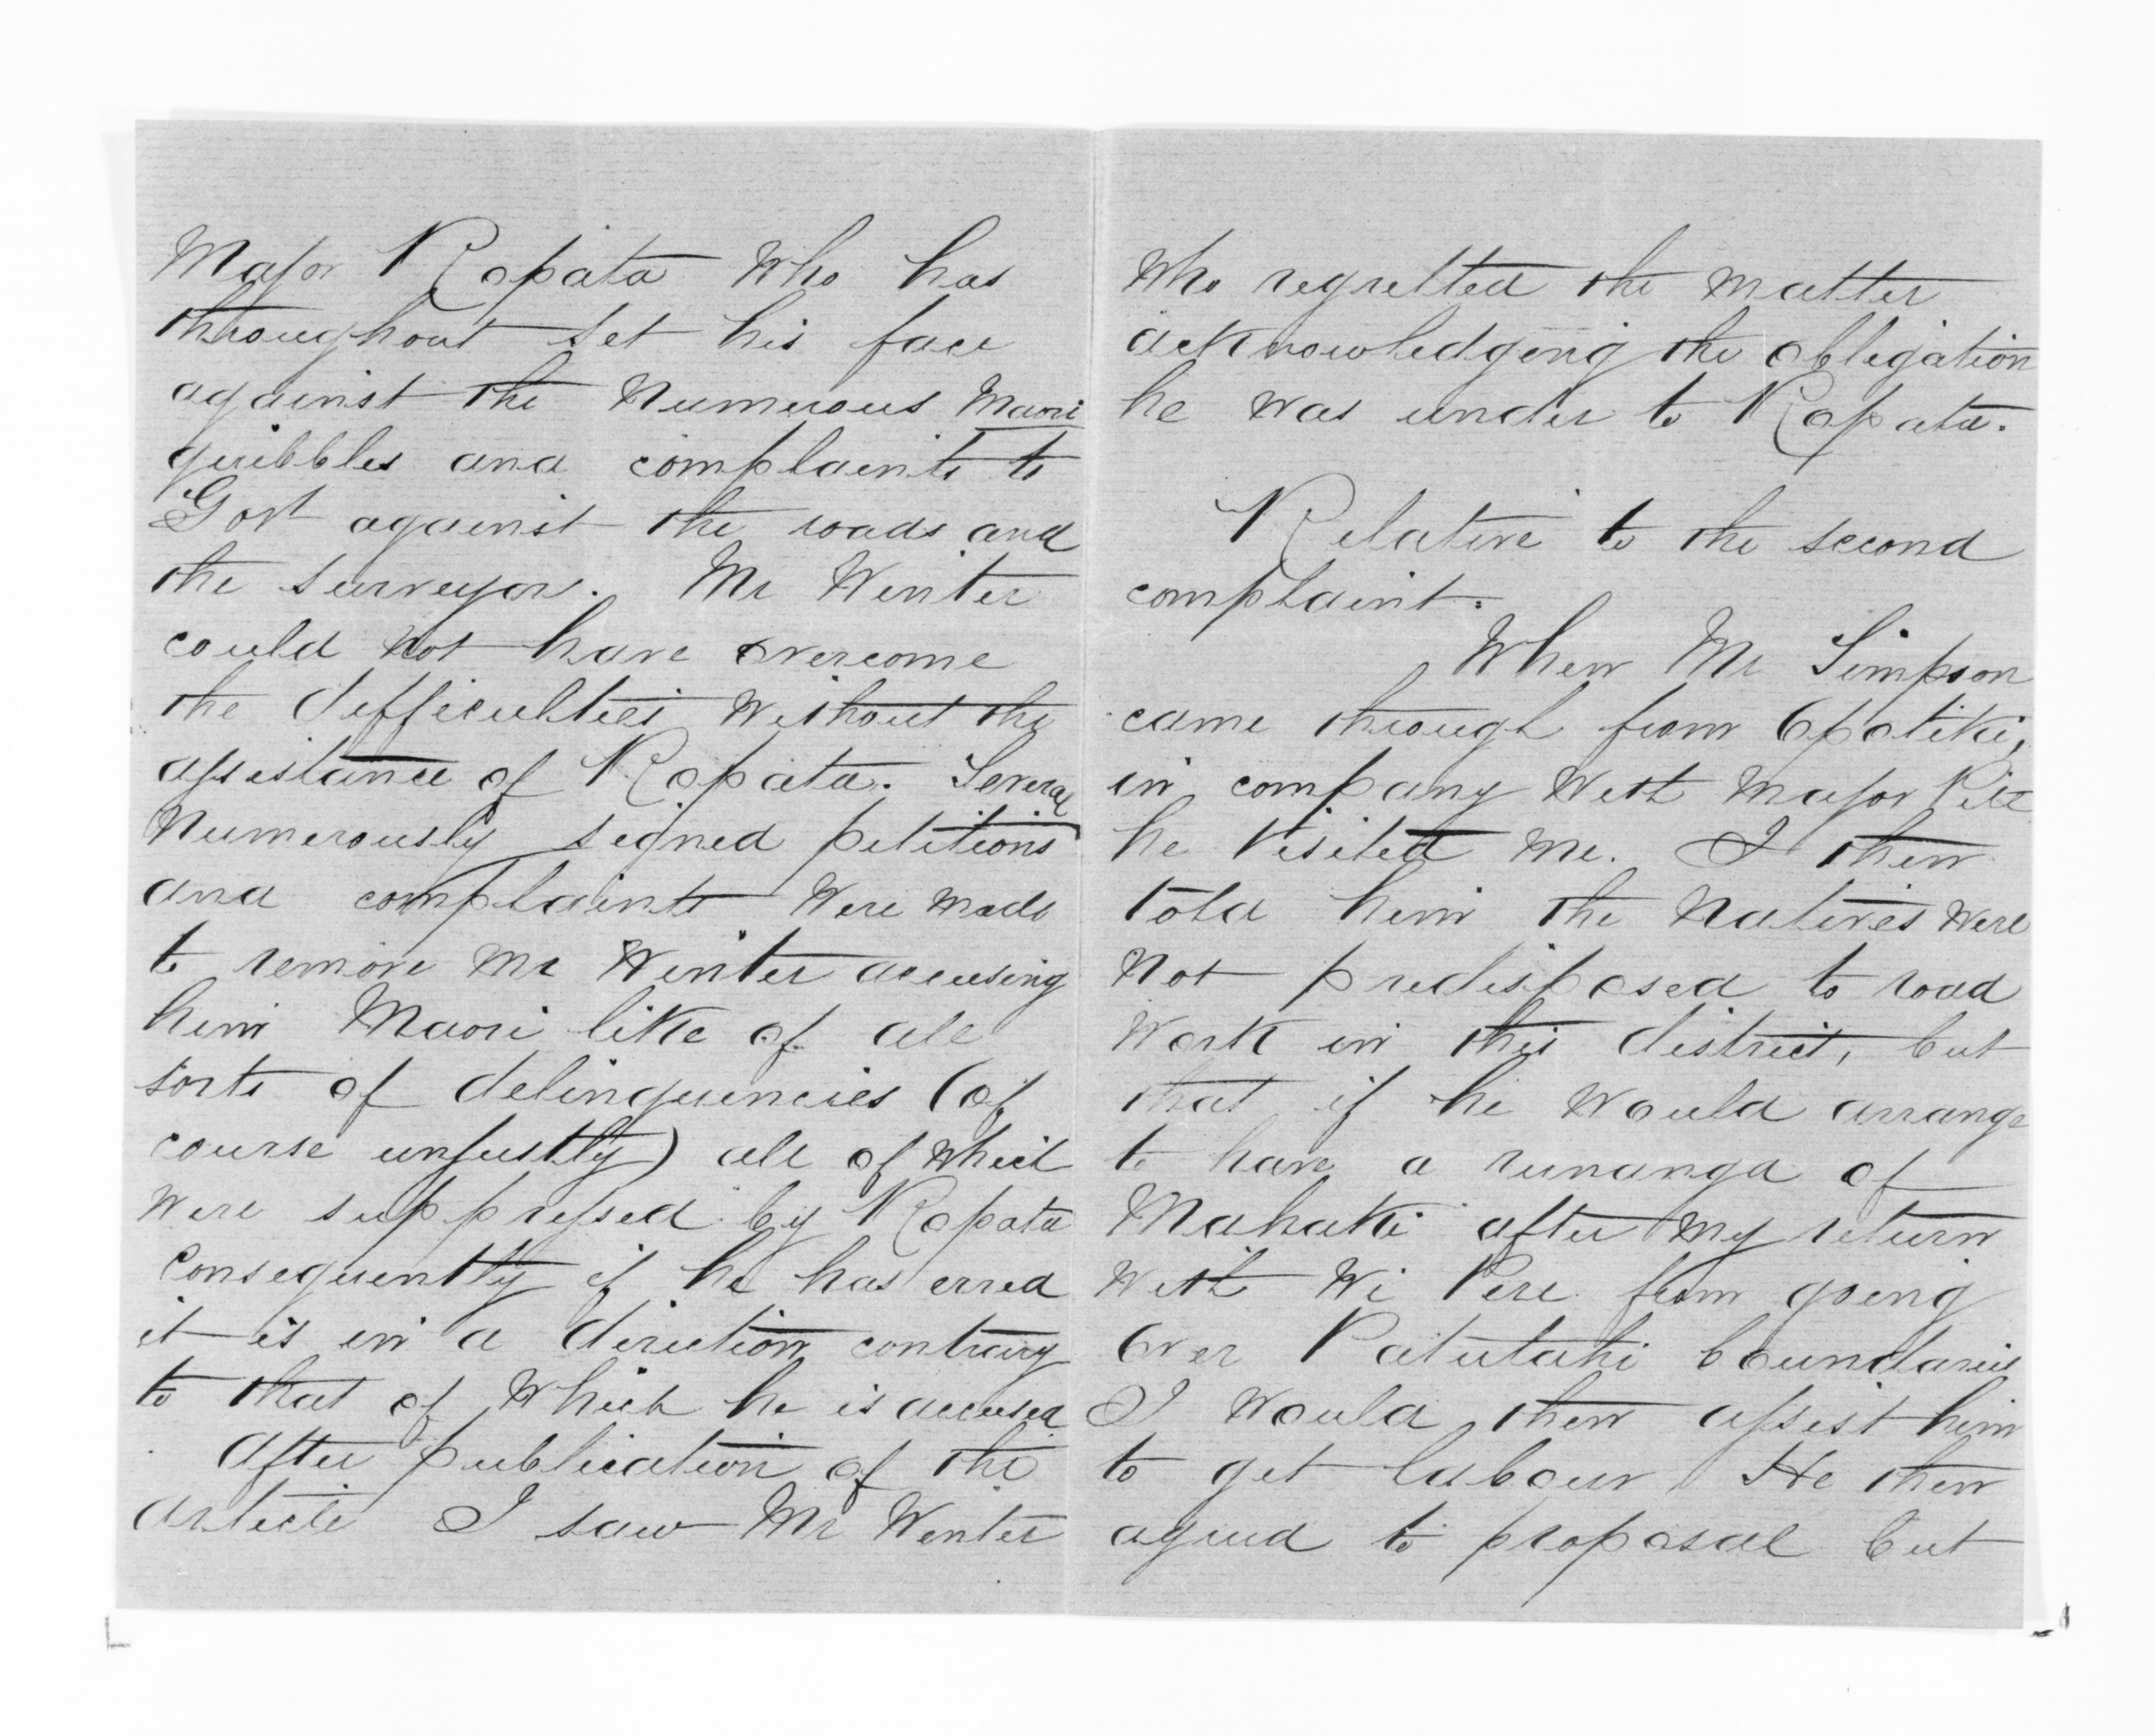 Major Ropata who has
throughout set his face
against the numerous Maori
quibbles and complaints to
Govt against the roads and
the surveyors. Mr Winter
could not have overcome
the difficulties without the
assistance of Ropata. Several
numerously signed petitions
and complaints were made
to remove Mr Winter accusing
him Maori like of all
sorts of delinquencies (of
course unjustly) all of which
were suppressed by Ropata
consequently if he has erred
it is in a direction contrary
to that of which he is accused
After publication of the
article I saw Mr Winter
who regretted the matter
acknowledgeing the obligation
he was under to Ropata.
Relative to the second
complaint.
When Mr Simpson
came through from Opotiki,
in company with Major Pitt
he visited me. I then
told him the Natives were
not predisposed to road
work in this district, but
that if he would arrange
to have a runanga of
Mahaki after my return
with Wi Pere from going
over Patutahi boundaries
I would then assist him
to get labour He then
agreed to proposal but